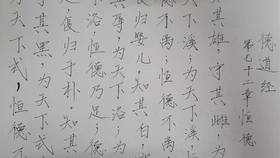 德道经
第七十二章恒德
其雄，守其雌，为
天下溪；为天下溪，恒
德不离；恒德不离
归婴儿。知其白，守
辱，为天下
下浴，恒德乃足；恒德
复归于朴。知其
其黑，为天下式
天下式，恒德不